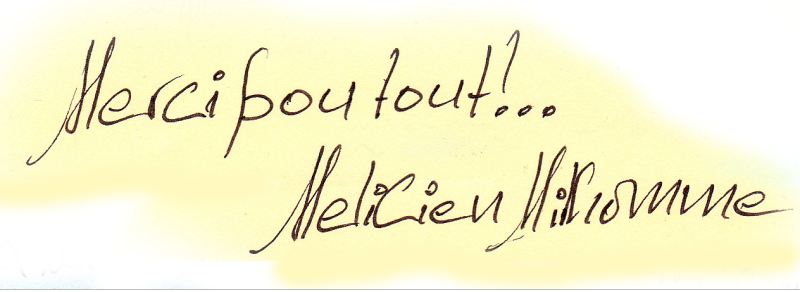 Merci pou tout!...
Melicien Milhomme